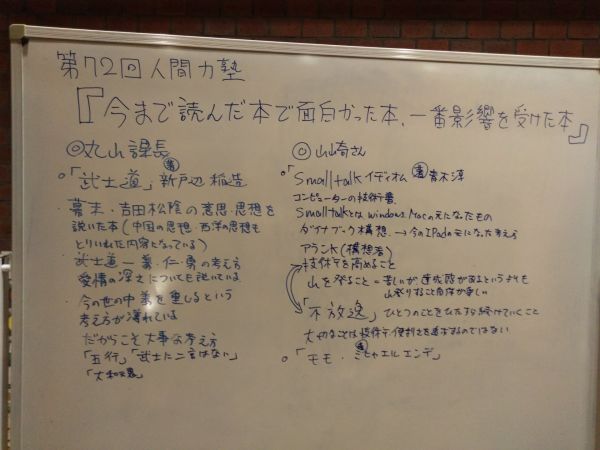 第72回 人間力塾
『今まで読んだ本で面白かった本、一番影響を受けた本』
◎丸山課長
・「武士道」著 新戸辺 稲造
・幕末・吉田松陰の意思・思想を
説いた本(中国の思想・西洋の思想も
とりいれた内容となっている)
・武士道―義・仁・勇の考え方
愛情の深さについても説いている
・今の世の中 義を重じるという
考え方が薄れている
だからこそ大事な考え方
「五行」「武士に二言はない」
◎山崎さん
・「Smalltalkイディオム」著 青木淳
コンピューターの技術書
Smalltalkとは windows、Macの元になったもの
ダイナブック構想 → 今のIPadの元になった考え方
アランK(構想者)
技術を高めること
山を登ること=苦しいが達成感があるというよりも
山登りすること自体が楽しい
「不放逸」ひとつのことをひたすら続けていくこと
大切なことは技術や便利さを追求するのではない
・「モモ・著 ミヒャエルエンデ」